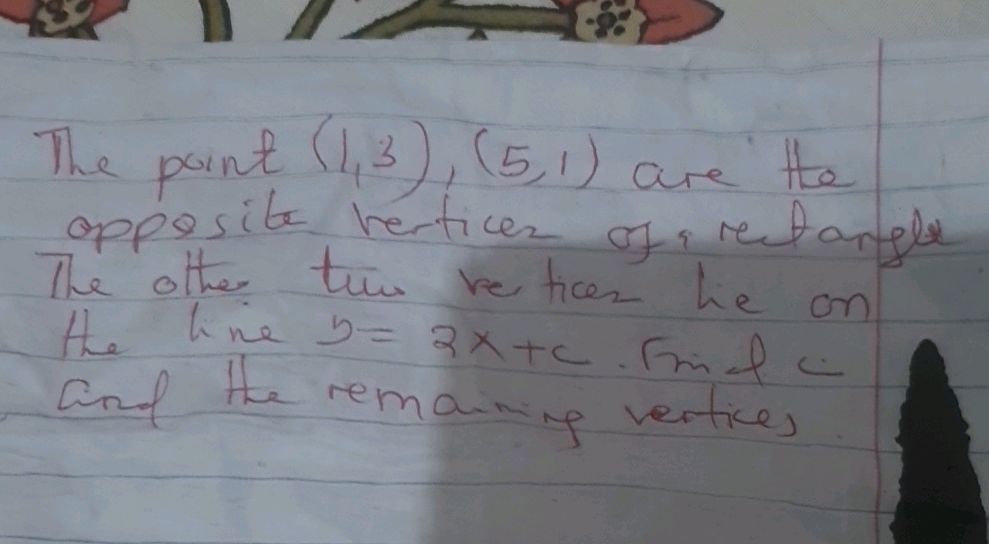 The point (1,3), (5,1) are the
opposite vertices of a rectangle
The other two vertices lie on
the line y = 2x+c. Find c
and the remaining vertices.